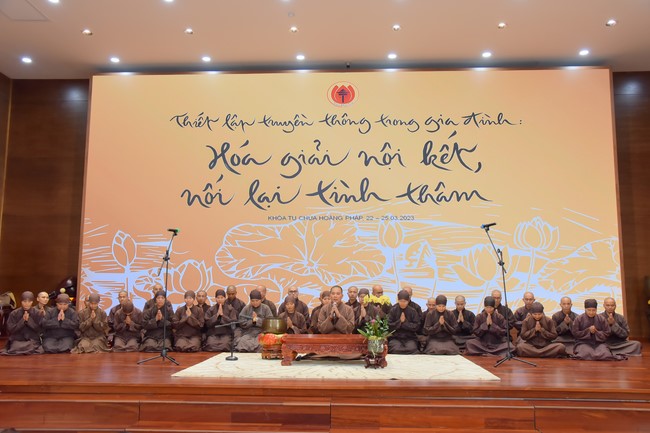 Thiết lập truyền thông trong gia đình:
Hóa giải nội kết,
nối lại tình thâm
KHÓA TU CHÙA HOẰNG PHÁP, 22 – 25.03.2023